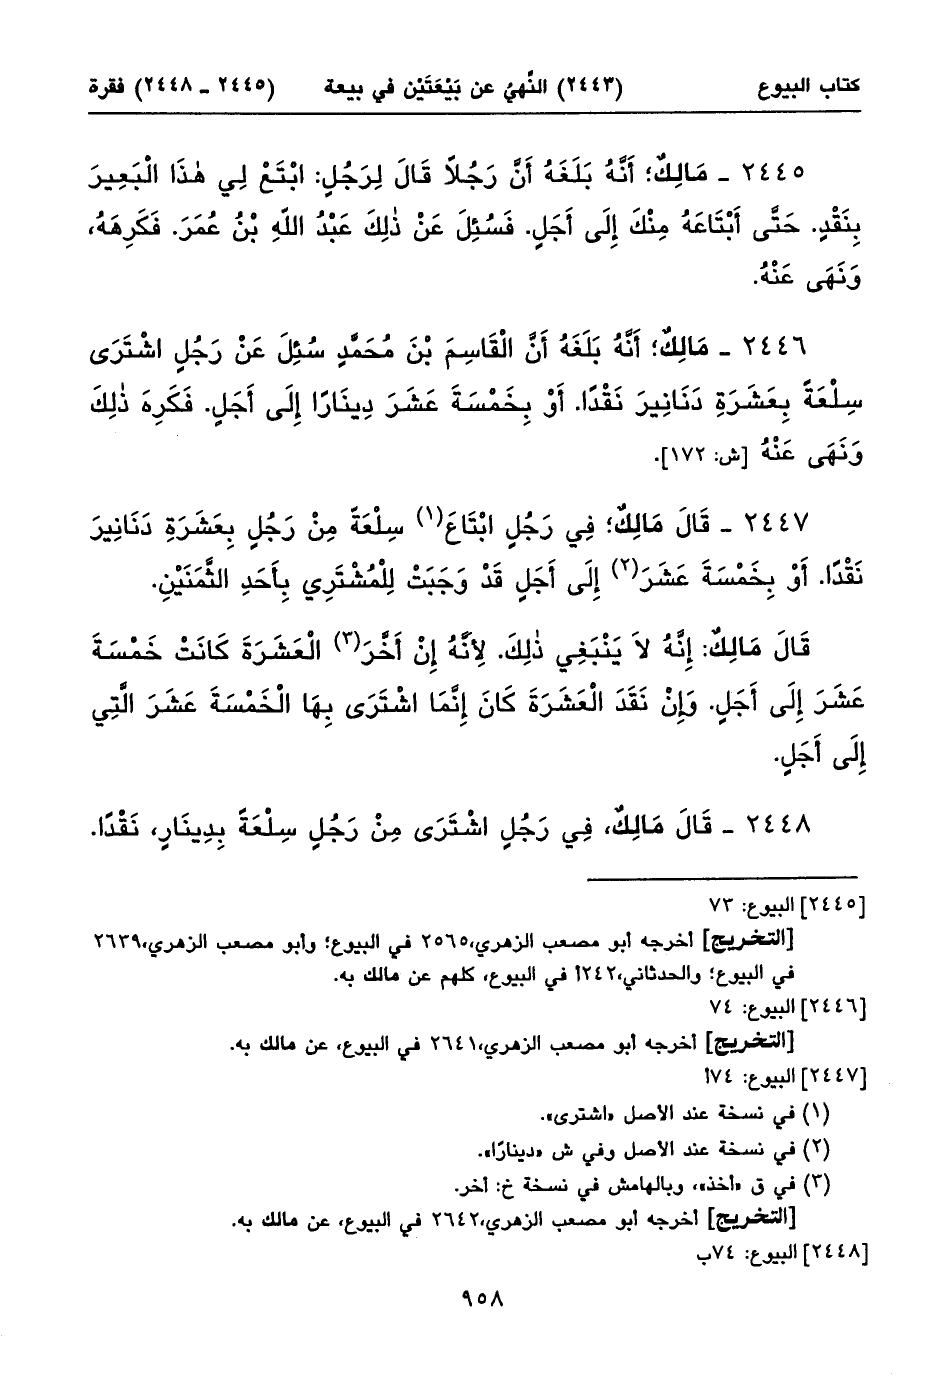 كتاب البيوع (٢٤٤٣) النَّهيُ عن بَيْعَتَيْن في بيعة (٢٤٤٥ ـ ٢٤٤٨) فقرة
٢٤٤٥ ـ مَالِكٌ؛ أَنَّهُ بَلَغَهُ أَنَّ رَجُلاً قَالَ لِرَجُلٍ: ابْتَعْ لِي هٰذَا الْبَعِيرَ
بِنَقْدٍ. حَتَّى أَبْتَاعَهُ مِنْكَ إِلَى أَجَلٍ. فَسُئِلَ عَنْ ذٰلِكَ عَبْدُ اللّهِ بْنُ عُمَرَ. فَكَرِهَهُ،
وَنَهَى عَنْهُ.
٢٤٤٦ ـ مَالِكٌ؛ أَنَّهُ بَلَغَهُ أَنَّ الْقَاسِمَ بْنَ مُحَمَّدٍ سُئِلَ عَنْ رَجُلٍ اشْتَرَى
سِلْعَةً بِعَشَرَةِ دَنَانِيرَ نَقْدًا. أَوْ بِخَمْسَةَ عَشَرَ دِينَارًا إِلَى أَجَلٍ. فَكَرِهَ ذٰلِكَ
وَنَهَى عَنْهُ [ش: ١٧٢].
٢٤٤٧ ـ قَالَ مَالِكٌ؛ فِي رَجُلٍ ابْتَاعَ(١) سِلْعَةً مِنْ رَجُلٍ بِعَشَرَةِ دَنَانِيرَ
نَقْدًا. أَوْ بِخَمْسَةَ عَشَرَ(٢) إِلَى أَجَلٍ قَدْ وَجَبَتْ لِلْمُشْتَرِي بِأَحَدِ الثَّمَنَيْنِ.
قَالَ مَالِكٌ: إِنَّهُ لاَ يَنْبَغِي ذٰلِكَ. لِأَنَّهُ إِنْ أَخَّرَ(٣) الْعَشَرَةَ كَانَتْ خَمْسَةَ
عَشَرَ إِلَى أَجَلٍ. وَإِنْ نَقَدَ الْعَشَرَةَ كَانَ إِنَّمَا اشْتَرَى بِهَا الْخَمْسَةَ عَشَرَ الَّتِي
إِلَى أَجَلٍ.
٢٤٤٨ ـ قَالَ مَالِكٌ، فِي رَجُلٍ اشْتَرَى مِنْ رَجُلٍ سِلْعَةً بِدِينَارٍ، نَقْدًا.
[٢٤٤٥] البيوع: ٧٣
[التخريج] أخرجه أبو مصعب الزهري،٢٥٦٥ في البيوع؛ وأبو مصعب الزهري،٢٦٣٩
في البيوع؛ والحدثاني،٢٤٢أ في البيوع، كلهم عن مالك به.
[٢٤٤٦] البيوع: ٧٤
[التخريج] أخرجه أبو مصعب الزهري،٢٦٤١ في البيوع، عن مالك به.
[٢٤٤٧] البيوع: ٧٤أ
(١) في نسخة عند الأصل «اشترى».
(٢) في نسخة عند الأصل وفي ش «دينارًا».
(٣) في ق «أخذ»، وبالهامش في نسخة خ: أخر.
[التخريج] أخرجه أبو مصعب الزهري،٢٦٤٢ في البيوع، عن مالك به.
[٢٤٤٨] البيوع: ٧٤ب
٩٥٨